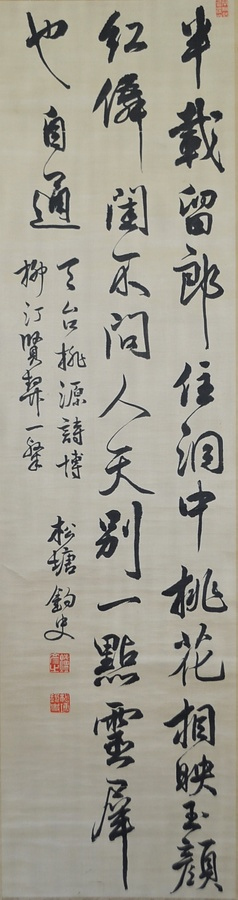 半載留郎住洞中桃花相映玉顏
紅僊閨不問人天別一點靈犀
也自通
天台桃源詩博
柳汀賢契一粲
松塘釣史